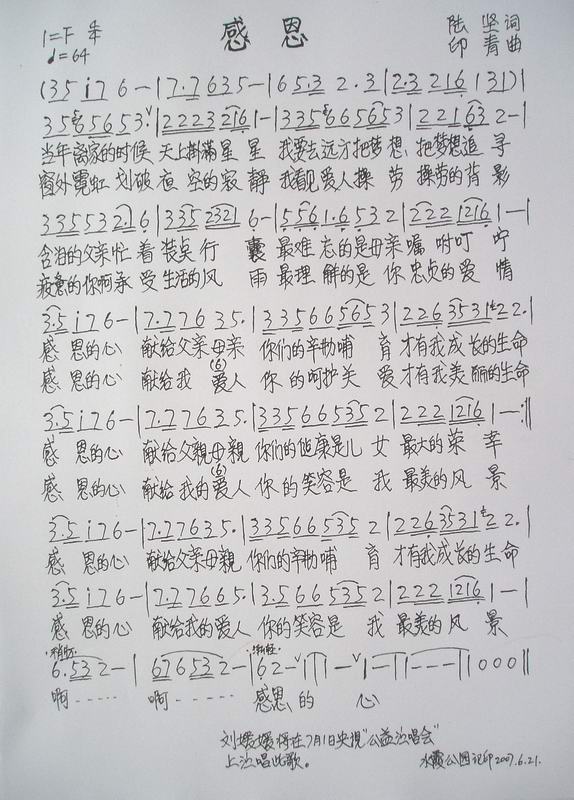 感恩
1=F 4/4
♩=64
陆坚词
印青曲
(3 5 i 7 6 — | 7. 7 6 3 5 — | 6 5. 3 2. 3 | 2. 3 2 1 6 1 3 1) |
当年离家的时候 天上掛满星星 我要去远方把梦想 把梦想追寻
窗外霓虹划破夜空的寂静 我看见爱人操劳 操劳的背影
3 3 5 5 3 2. 1 6 | 3 3 5 2 3 2 1 6 — | 5 5 6 1. 6 5 3 2 | 2 2 2 1 2 1 6 1 — |
含泪的父亲忙着装点行囊 最难忘的是母亲嘱咐叮咛
疲惫的你啊承受生活的风雨 最理解的是你忠贞的爱情
3. 5 i 7 6 — | 7. 7 7 6 3 5. | 3 3 5 6 6 5 6 5 3 | 2 2 6 3 5 3 1 2 2. |
感恩的心 献给父亲母亲 你们的辛勤哺育 才有我成长的生命
(6)
感恩的心 献给我爱人 你的呵护关爱 才有我美丽的生命
3. 5 i 7 6 — | 7. 7 7 6 3 5. | 3 3 5 6 6 5 3 5 2 | 2 2 2 1 2 1 6 1 — :||
感恩的心 献给父親母親 你们的健康是儿女最大的荣幸
(6)
感恩的心 献给我的爱人 你的笑容是我最美的风景
3. 5 i 7 6 — | 7. 7 7 6 3 5. | 3 3 5 6 6 5 3 5 2 | 2 2 6 3 5 3 1 2 2. |
感恩的心 献给父亲母親 你们的辛勤哺育 才有我成长的生命
3. 5 i 7 6 — | 7. 7 7 6 6 5. | 3. 5 6 6 5 3 5 2 | 2 2 2 1 2 1 6 1 — |
感恩的心 献给我的爱人 你的笑容是我最美的风景
6. 5 3 2 — | 6 7 6 5 3 2 — | 6 2 — | 1 — | 1 — | — — — | 1 0 0 0 ||
啊 ····· 啊 ····· 感恩的心
刘媛媛将在7月1日央視"公益演唱会"
上演唱此歌。
水霞公园记印2007.6.21.